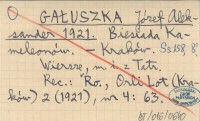 GAŁUSZKA Józef Alek-
sander 1921. Biesiada Ka-
meleonów. – Kraków. Ss 158, 8°
Wiersze, m in z Tatr.
Rec.: "Ro., Orli Lot (Kra-
ków) 2 (1921), nr 4: 63.